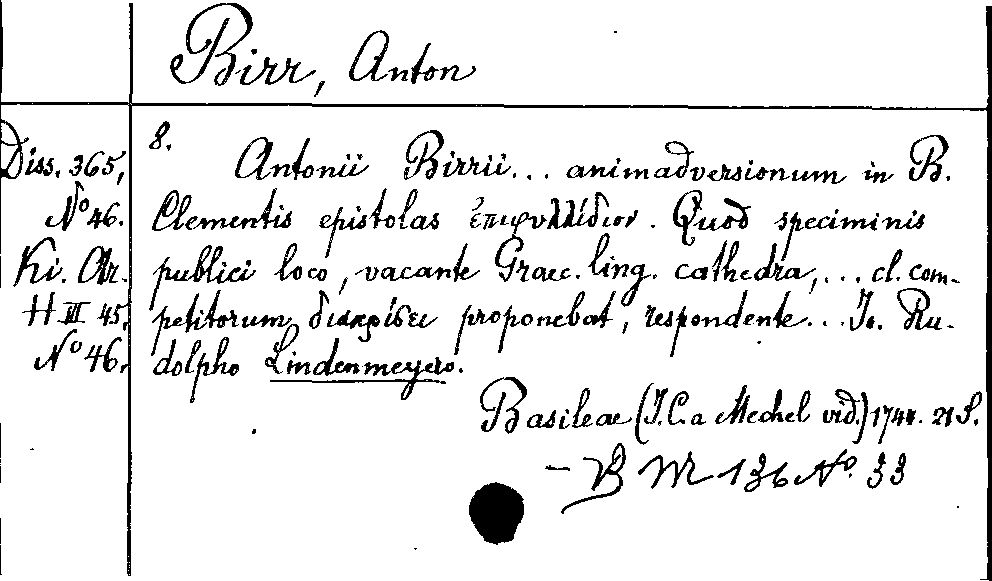 Birr, Anton
Diss. 365,
No 46.
Ki. Ar.
H III 45,
No 46.
8.
Antonii Birrii... animadversionum in B.
Clementis epistolas ἐπιφυλλίδιον. Quod speciminis
publici loco, vacante Graec. ling. cathedra,... cl. com-
petitorum διακρίσει proponebat, respondente... Jo. Ru-
dolpho Lindenmeyero.
Basileae (J. C. a Mechel vid.) 1744. 21 S.
– B M 136 No. 33